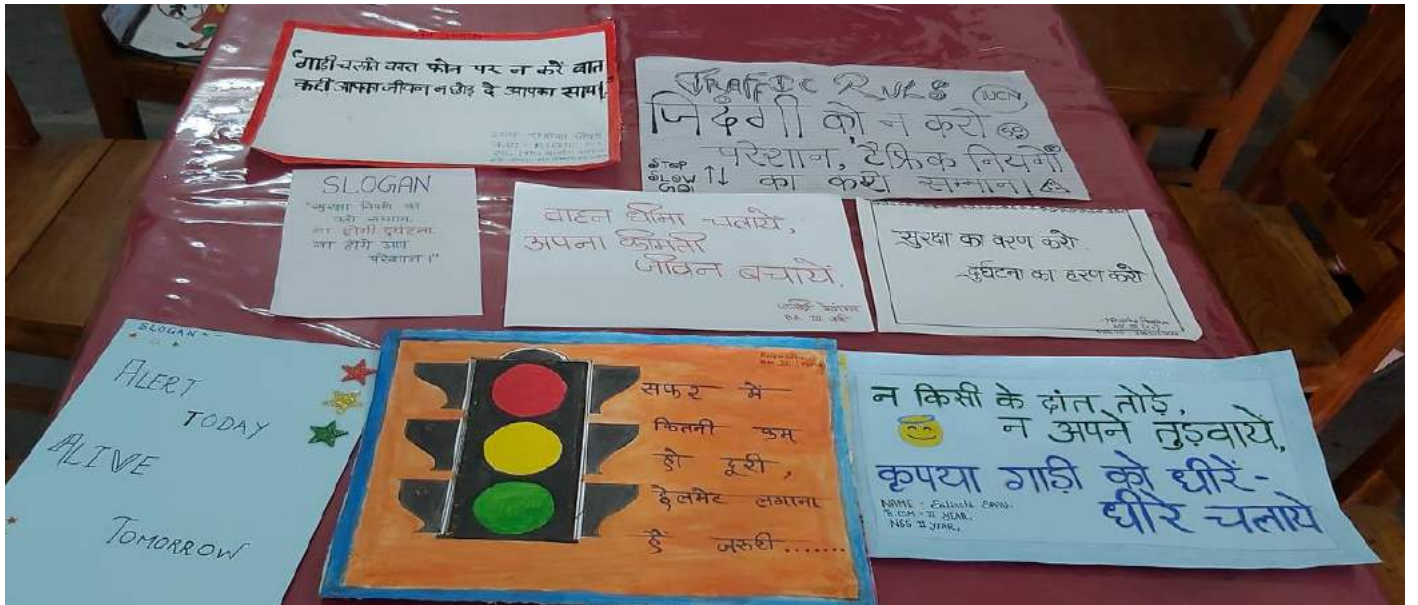 "गाड़ी चलाते वक्त फोन पर न करें बात
कहीं आपका जीवन न छोड़ दे आपका साथ।"
TRAFFIC RULES
जिंदगी को न करो
परेशान, ट्रैफिक नियमों
का करो सम्मान।
STOP
SLOW
GO!
SLOGAN
"सुरक्षा नियमों का
करो सम्मान
ना होगी दुर्घटना
ना होंगे आप
परेशान।"
वाहन धीमा चलाये,
अपना कीमती
जीवन बचायें,
B.A. III वर्ष
सुरक्षा का वरण करो
दुर्घटना का हरण करो
SLOGAN -
ALERT
TODAY
ALIVE
TOMORROW
सफर में
कितनी कम
हो दूरी,
हेलमेट लगाना
है जरुरी.......
न किसी के दांत तोड़े,
न अपने तुड़वाये,
कृपया गाड़ी को धीरें-
धीरे चलाये
NAME -
B.COM - II YEAR.
NSS II YEAR.